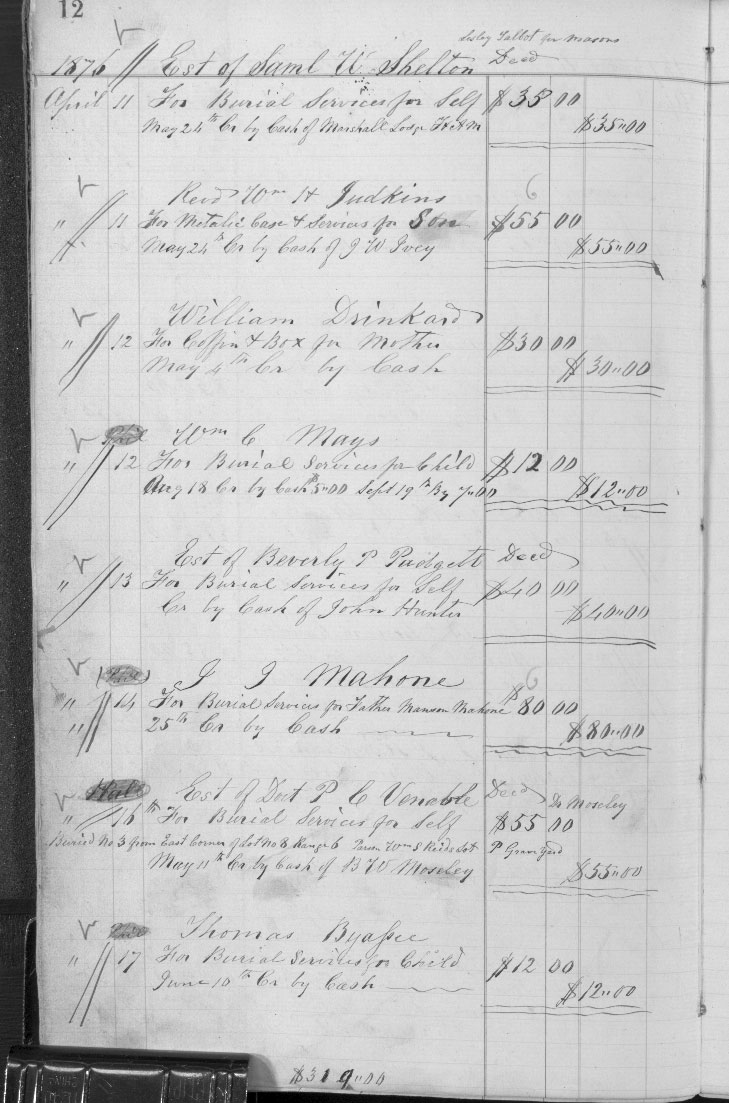 12
Lesley Talbot for Masons
1876 Est of Saml W Shelton Decd
April 11 For Burial Services for Self $35 00
May 24th Cr by Cash of Marshall Lodge F & A M $35"00
Revd Wm H Judkins 6
" 11 For Metalic Case & Services for Son $55 00
May 24th Cr by Cash of J W Ivey $55"00
William Drinkard
" 12 For Coffin & Box for Mother $30 00
May 4th Cr by Cash $30"00
Wm C Mays
" 12 For Burial Services for Child $12 00
Aug 18 Cr by Cash $5"00 Sept 19th By 7"00 $12"00
Est of Beverly P Pudgett Decd
" 13 For Burial Services for Self $40 00
Cr by Cash of John Hunter $40"00
J J Mahone 6
" 14 For Burial Services for Father Manson Mahone $80 00
" 25th Cr by Cash $80"00
Est of Doct P C Venable Decd Dr Moseley
" 16th For Burial Services for Self $55 00
Buried No 3 from East Corner of Lot No 8 Range 6 Parson Wm S Reids Lot P Grave Yard
May 11th Cr by Cash of B W Moseley $55"00
Thomas Byassee
" 17 For Burial Services for Child $12 00
June 10th Cr by Cash $12"00
$319"00